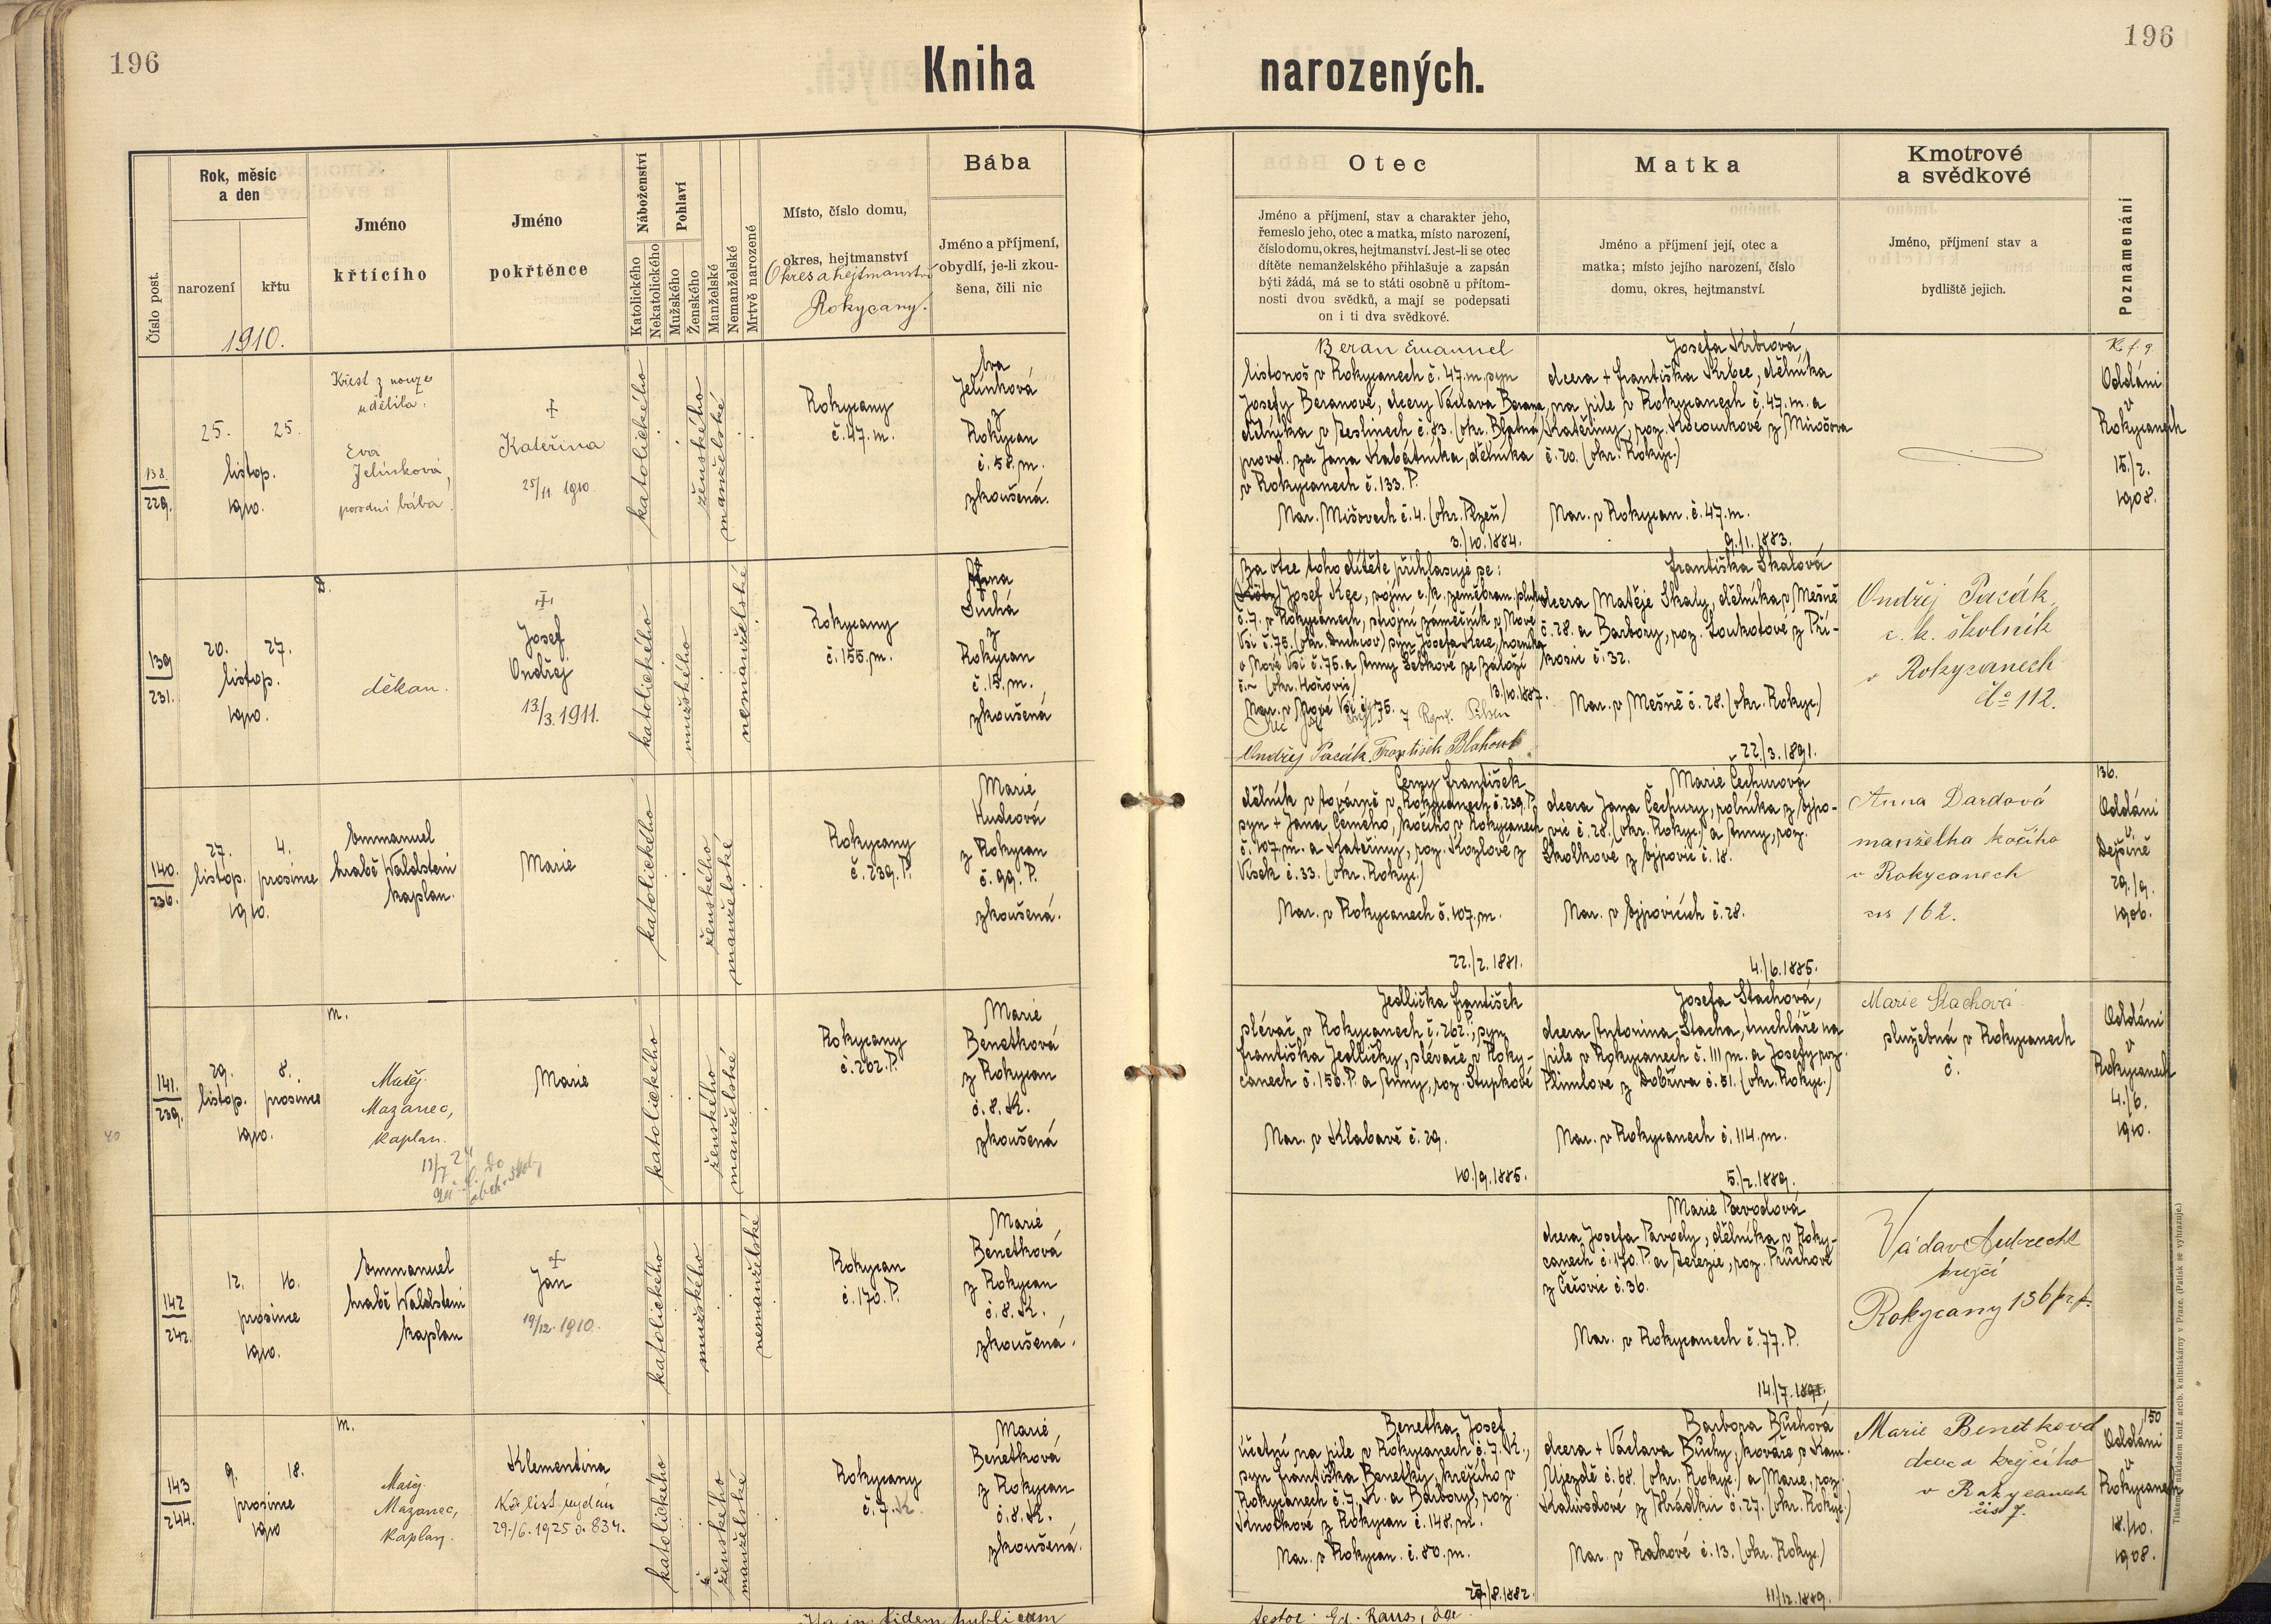 196
Kniha
narozených.
196
Číslo post.
Rok, měsíc
a den
narození
křtu
1910.
Jméno
křtícího
Jméno
pokřtěnce
Náboženství
Katolického
Nekatolického
Pohlaví
Mužského
Ženského
Manželské
Nemanželské
Mrtvě narozené
Místo, číslo domu,
okres, hejtmanství
Okres a hejtmanství
Rokycany.
Bába
Jméno a příjmení,
obydlí, je-li zkou-
šena, čili nic
Otec
Jméno a příjmení, stav a charakter jeho,
řemeslo jeho, otec a matka, místo narození,
číslo domu, okres, hejtmanství. Jest-li se otec
dítěte nemanželského přihlašuje a zapsán
býti žádá, má se to státi osobně u přítom-
nosti dvou svědků, a mají se podepsati
on i ti dva svědkové.
Matka
Jméno a příjmení její, otec a
matka; místo jejího narození, číslo
domu, okres, hejtmanství.
Kmotrové
a svědkové
Jméno, příjmení stav a
bydliště jejich.
Poznamenání
138.
229.
25. 25.
listop.
1910.
Křest z nouze
udělila.
Eva
Jelínková,
porodní bába.
Kateřina
25/11 1910
katolického
ženského
manželské
Rokycany
č. 47. m.
Eva
Jelínková
z
Rokycan
č. 58. m.
zkoušená.
Beran Emanuel
listonoš v Rokycanech č. 47. m. syn
Josefy Beranové, dcery Václava Berana,
dělníka v č. 83. (okr. Blatná)
provd. za Jana Kabátníka, dělníka
v Rokycanech č. 133. P.
Nar. Mišovech č. 4. (okr. Plzeň)
3./10. 1884.
Josefa Krbcová,
dcera + Františka Krbce, dělníka
na pile v Rokycanech č. 47. m. a
Kateřiny, roz. Kocourkové z Mirošova
č. 20. (okr. Rokyc.)
Nar. v Rokycan. č. 47. m.
9./1. 1883.
Oddáni
v
Rokycanech
15./2.
1908.
139
231.
20. 27.
listop.
1910.
D.
děkan.
Josef
Ondřej
13./3. 1911.
katolického
mužského
nemanželské
Rokycany
č. 155. m.
Anna
Suchá
z
Rokycan
č. 15. m.
zkoušená
Za otce toho dítěte přihlašuje se:
Josef Kec, vojín c. k. zeměbran. pluku
č. 7. v Rokycanech, strojní zámečník v Nové
Vsi č. 75. (okr. Duchcov) syn Josefa Kece, horníka
v Nové Vsi č. 75. a Anny Šebkové ze Záloží
č. – (okr. Hořovic)
13./10. 1887.
Nar. v Nové Vsi č. 75.
Ondřej Pacák. František Blahout
Františka Skalová
dcera Matěje Skaly, dělníka v Mešně
č. 28. a Barbory, roz. Loukotové z Pří-
kosic č. 32.
Nar. v Mešně č. 28. (okr. Rokyc.)
22./3. 1891.
Ondřej Pacák
c. k. školník
v Rokycanech
čís 112.
140.
236.
27. 4.
listop. prosince
1910.
Emmanuel
hrabě Waldstein
kaplan.
Marie
katolického
ženského
manželské
Rokycany
č. 239. P.
Marie
Kudcová
z Rokycan
č. 99. P.
zkoušená.
Černý František
dělník v továrně v Rokycanech č. 239. P.
syn + Jana Černého, kočího v Rokycanech
č. 107. m. a Kateřiny, roz. Kozlové z
Vísek č. 33. (okr. Rokyc.)
Nar. v Rokycanech č. 107. m.
22./2. 1881.
Marie Čechurová
dcera Jana Čechury, rolníka z Ejpo-
vic č. 28. (okr. Rokyc.) a Anny, roz.
Školkové z Ejpovic č. 18.
Nar. v Ejpovicích č. 28.
4./6. 1885.
Anna Dardová
manželka kočího
v Rokycanech
čís 162.
136.
Oddáni
v
Dejšině
29./9.
1906.
141.
239.
29. 8.
listop. prosince
1910.
m.
Matěj
Mazanec,
kaplan.
Marie
katolického
ženského
manželské
Rokycany
č. 262. P.
Marie
Benetková
z Rokycan
č. 8. K.
zkoušená
Jedlička František
slévač v Rokycanech č. 262. P., syn
Františka Jedličky, slévače v Roky-
canech č. 156. P. a Anny, roz. Stupkové
Nar. v Klabavě č. 29.
10./9. 1885.
Josefa Stachová,
dcera Antonína Stacha, truhláře na
pile v Rokycanech č. 111 m. a Josefy roz.
Plimlové z Dobříva č. 51. (okr. Rokyc.)
Nar. v Rokycanech č. 114. m.
5./2. 1889.
Marie Stachová
služebná v Rokycanech
č.
Oddáni
v
Rokycanech
4./6.
1910.
142
242.
12. 16.
prosince
1910.
Emmanuel
hrabě Waldstein
kaplan
Jan
19/12. 1910.
katolického
mužského
nemanželské
Rokycan
č. 170. P.
Marie
Benetková
z Rokycan
č. 8. K.
zkoušená.
Marie Pavodová
dcera Josefa Pavody, dělníka v Roky-
canech č. 170. P. a Terezie, roz. Průchové
z Čečovic č. 36.
Nar. v Rokycanech č. 77. P.
14./7. 1891.
Václav Aubrecht
krejčí
Rokycany 136
143
244.
9. 18.
prosince
1910
m.
Matěj
Mazanec,
kaplan.
Klementina
Kř. list vydán
29./6. 1925 č. 834.
katolického
ženského
manželské
Rokycany
č. 7. K.
Marie
Benetková
z Rokycan
č. 8. K.
zkoušená.
Benetka Josef
účetní na pile v Rokycanech č. 7. K.,
syn Františka Benetky, krejčího v
Rokycanech č. 7. K. a Barbory, roz.
Knotkové z Rokycan č. 148. m.
Nar. v Rokycan. č. 80. m.
27./8. 1882.
Barbora Buchová
dcera + Václava Buchy, kováře v Kam.
Újezdě č. 68. (okr. Rokyc.) a Marie, roz.
Kalivodové z Hrádku č. 27. (okr. Rokyc.)
Nar. v Rakové č. 13. (okr. Rokyc.)
11/12. 1889.
Marie Benetková
dcera krejčího
v Rokycanech
čís 7.
150
Oddáni
v
Rokycanech
18./10.
1908.
Tiskem a nákladem kníž. arcib. knihtiskárny v Praze. (Patisk se vyhrazuje.)
in fidem publicam
testor: Ed. Raus,